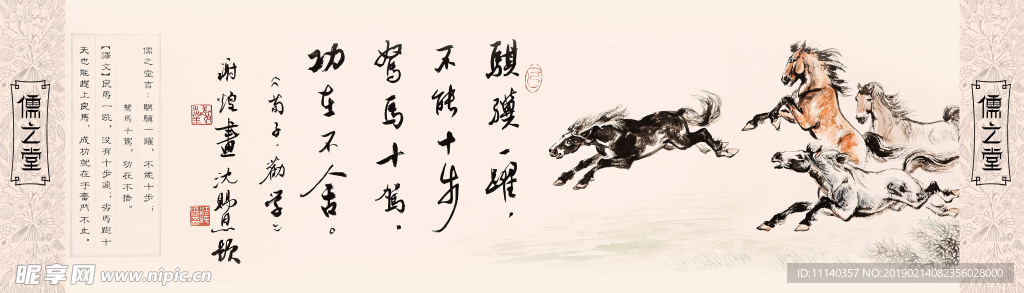 儒之堂
騏驥一躍，
不能十步
駑馬十駕，
功在不舍。
《荀子·勸學》
謝煌畫 沈
儒之堂言：騏驥一躍，不能十步；
駑馬十駕，功在不捨。
【譯文】良馬一跳，沒有十步遠；劣馬跑十
天也能趕上良馬，成功就在于奮鬥不止。
儒之堂
昵享网 www.nipic.cn
ID:11140357 NO:20190214082356028000